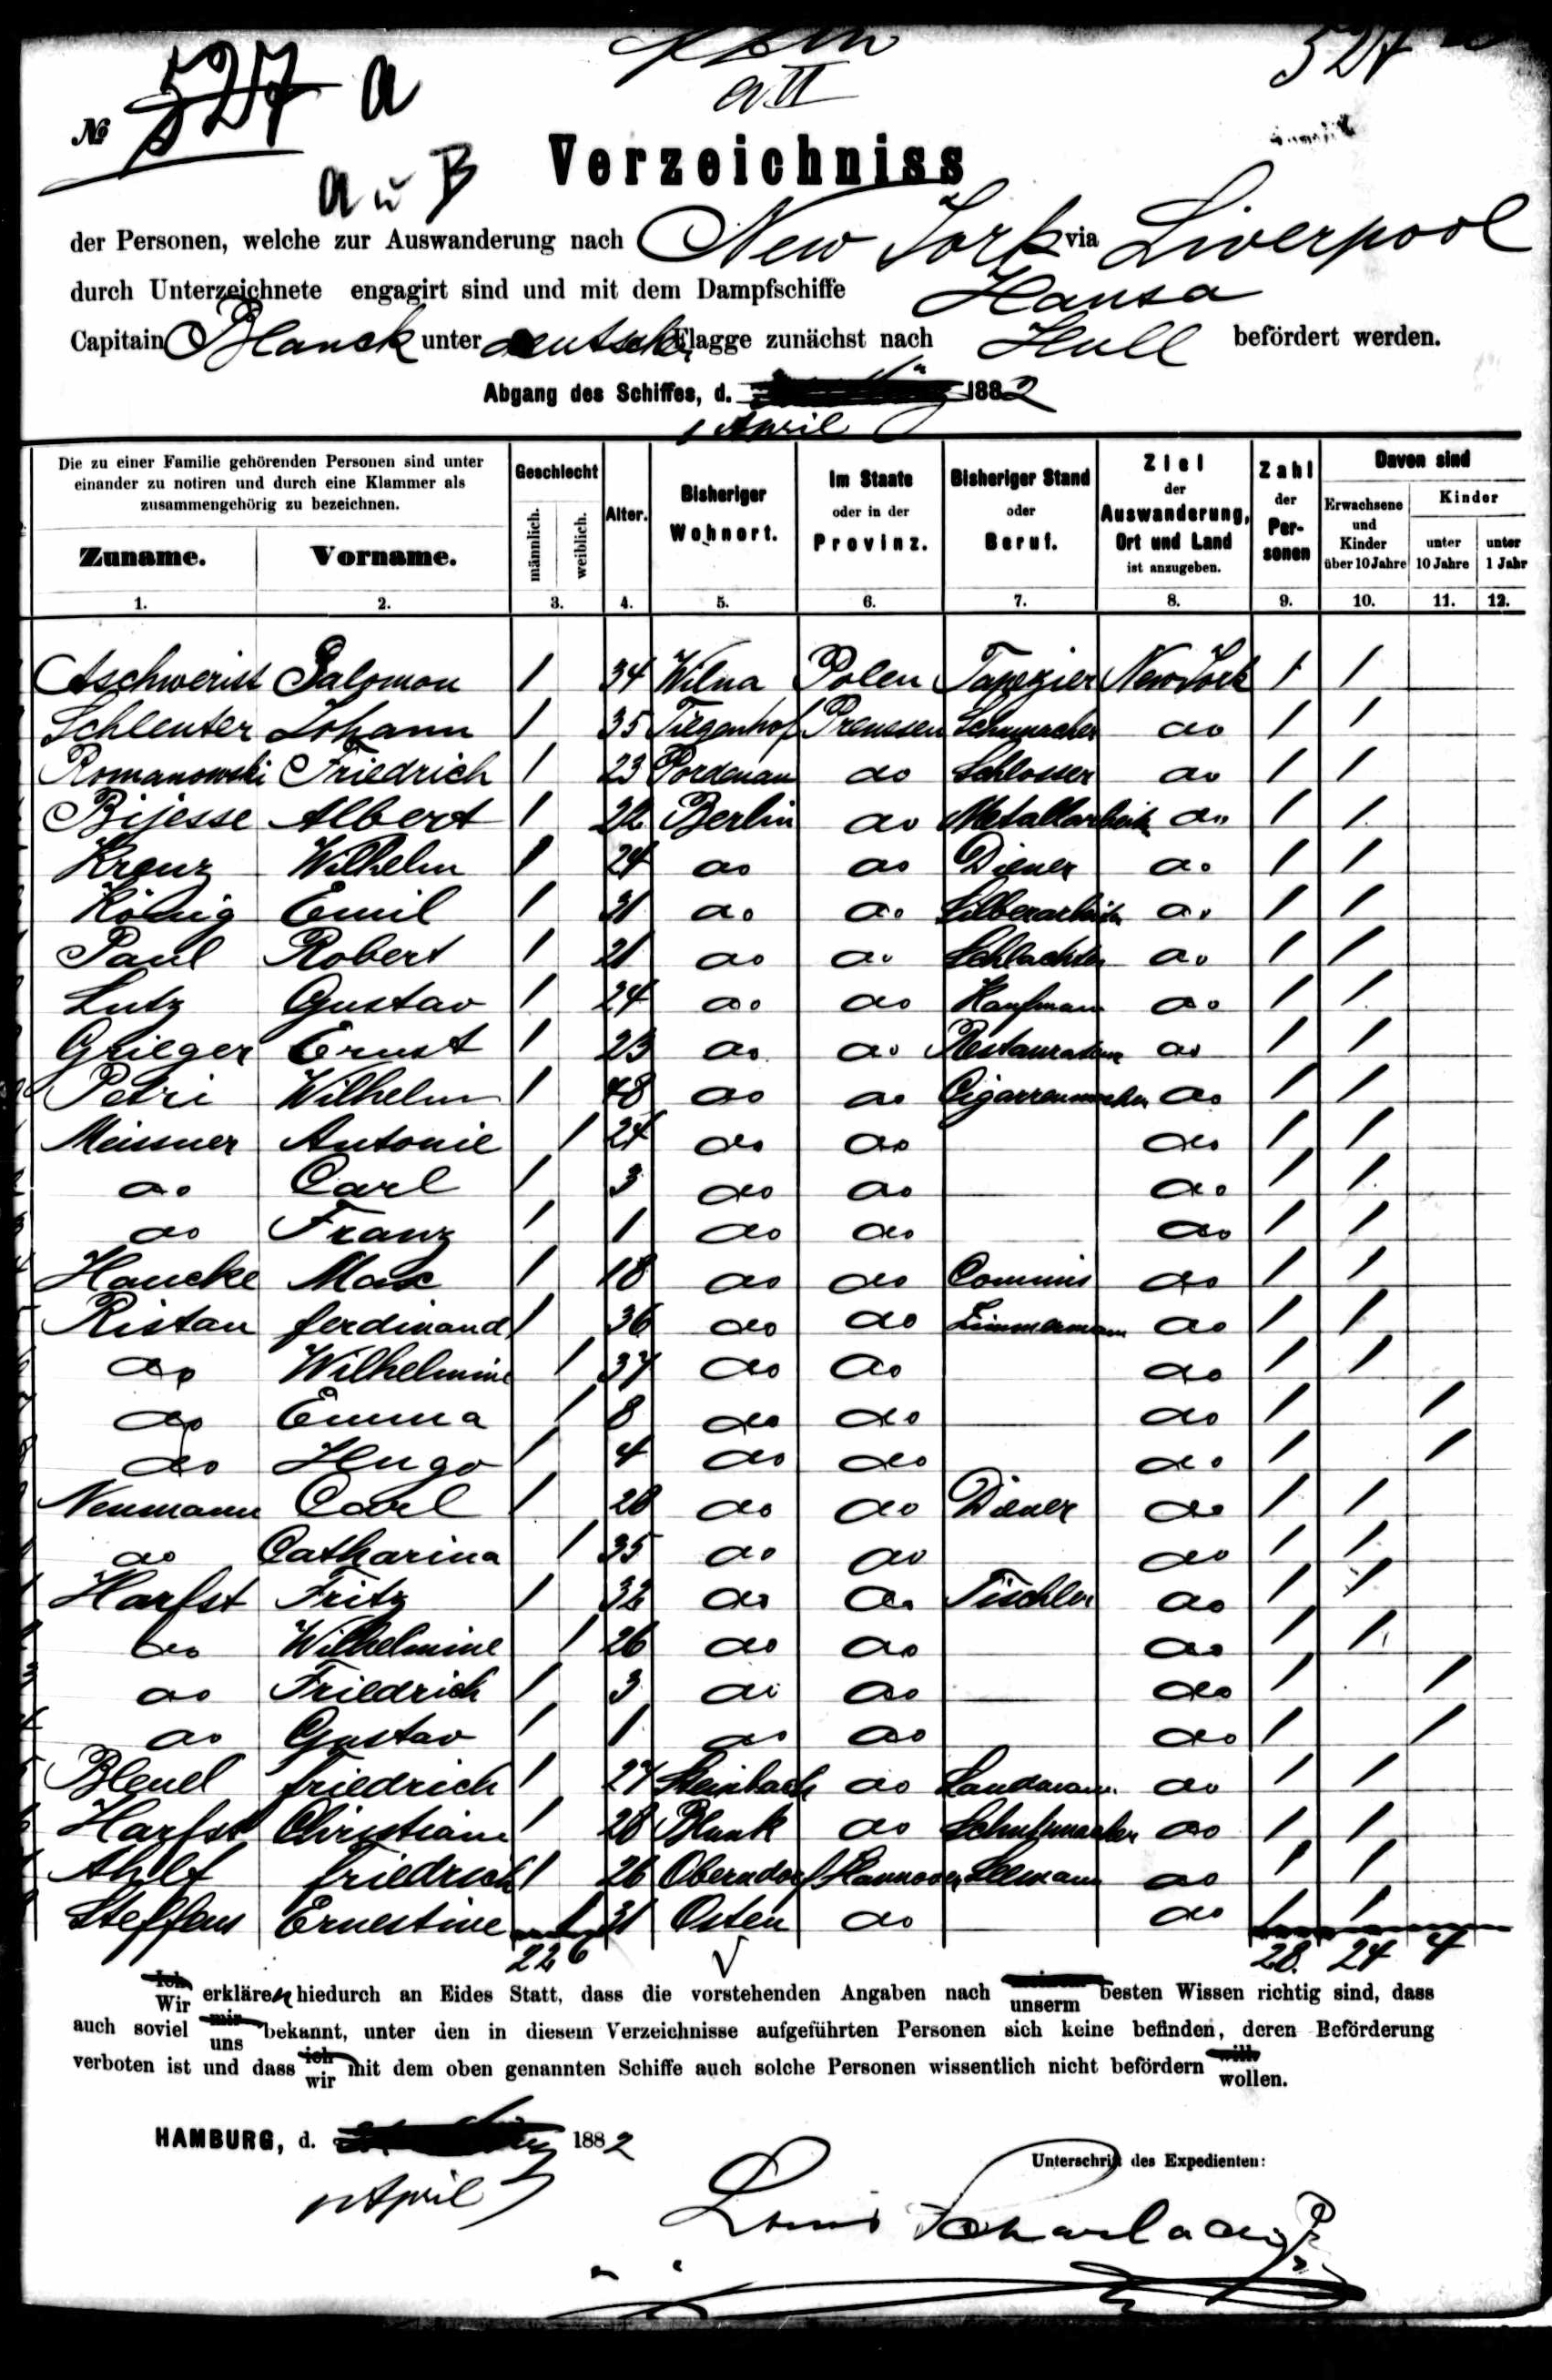 527 a
a II
527
№
a u B
Verzeichniss
der Personen, welche zur Auswanderung nach New York via Liverpool
durch Unterzeichnete engagirt sind und mit dem Dampfschiffe Hansa
Capitain Blanck unter deutsch Flagge zunächst nach Hull befördert werden.
Abgang des Schiffes, d. 1882
1 April
Die zu einer Familie gehörenden Personen sind unter einander zu notiren und durch eine Klammer als zusammengehörig zu bezeichnen.
Zuname. Vorname. Geschlecht männlich. weiblich. Alter. Bisheriger Wohnort. Im Staate oder in der Provinz. Bisheriger Stand oder Beruf. Ziel der Auswanderung, Ort und Land ist anzugeben. Zahl der Personen Davon sind Erwachsene und Kinder über 10 Jahre Kinder unter 10 Jahre unter 1 Jahr
1. 2. 3. 4. 5. 6. 7. 8. 9. 10. 11. 12.
Salomon 1 34 Wilna Polen Tapezier New York 1 1
Schleuter Johann 1 35 Tiegenhof Preussen Schumacher do 1 1
Romanowski Friedrich 1 23 Pordenau do Schlosser do 1 1
Bijesse Albert 1 22 Berlin do Metallarbeiter do 1 1
Kreuz Wilhelm 1 24 do do Diener do 1 1
König Emil 1 31 do do Silberarbeiter do 1 1
Paul Robert 1 21 do do Schlachter do 1 1
Lutz Gustav 1 24 do do Kaufmann do 1 1
Grieger Ernst 1 23 do do Restaurateur do 1 1
Petri Wilhelm 1 48 do do Cigarrenmacher do 1 1
Meissner Antonie 1 24 do do do 1 1
do Carl 1 3 do do do 1 1
do Franz 1 1 do do do 1 1
Haucke Max 1 18 do do Commis do 1 1
Ristau ferdinand 1 36 do do Zimmermann do 1 1
do Wilhelmine 1 37 do do do 1 1
do Emma 1 8 do do do 1 1
do Hugo 1 4 do do do 1 1
Neumann Carl 1 28 do do Diener do 1 1
do Catharina 1 35 do do do 1 1
Harfst Fritz 1 32 do do Tischler do 1 1
do Wilhelmine 1 26 do do do 1 1
do Friedrich 1 3 do do do 1 1
do Gustav 1 1 do do do 1 1
Bleuel friedrich 1 27 Steinbach do Landmann do 1 1
Harfst Christian 1 28 Blank do Schuhmacher do 1 1
Ahlf friedrich 1 26 Oberndorf Hannover Seemann do 1 1
Steffens Ernestine 1 31 Osten do do 1 1
22 6 28. 24 4
Ich
Wir erklären hiedurch an Eides Statt, dass die vorstehenden Angaben nach unserm besten Wissen richtig sind, dass
auch soviel mir uns bekannt, unter den in diesem Verzeichnisse aufgeführten Personen sich keine befinden, deren Beförderung
verboten ist und dass ich wir mit dem oben genannten Schiffe auch solche Personen wissentlich nicht befördern will wollen.
HAMBURG, d. 1882
1 April
Unterschrift des Expedienten:
Louis Scharlach